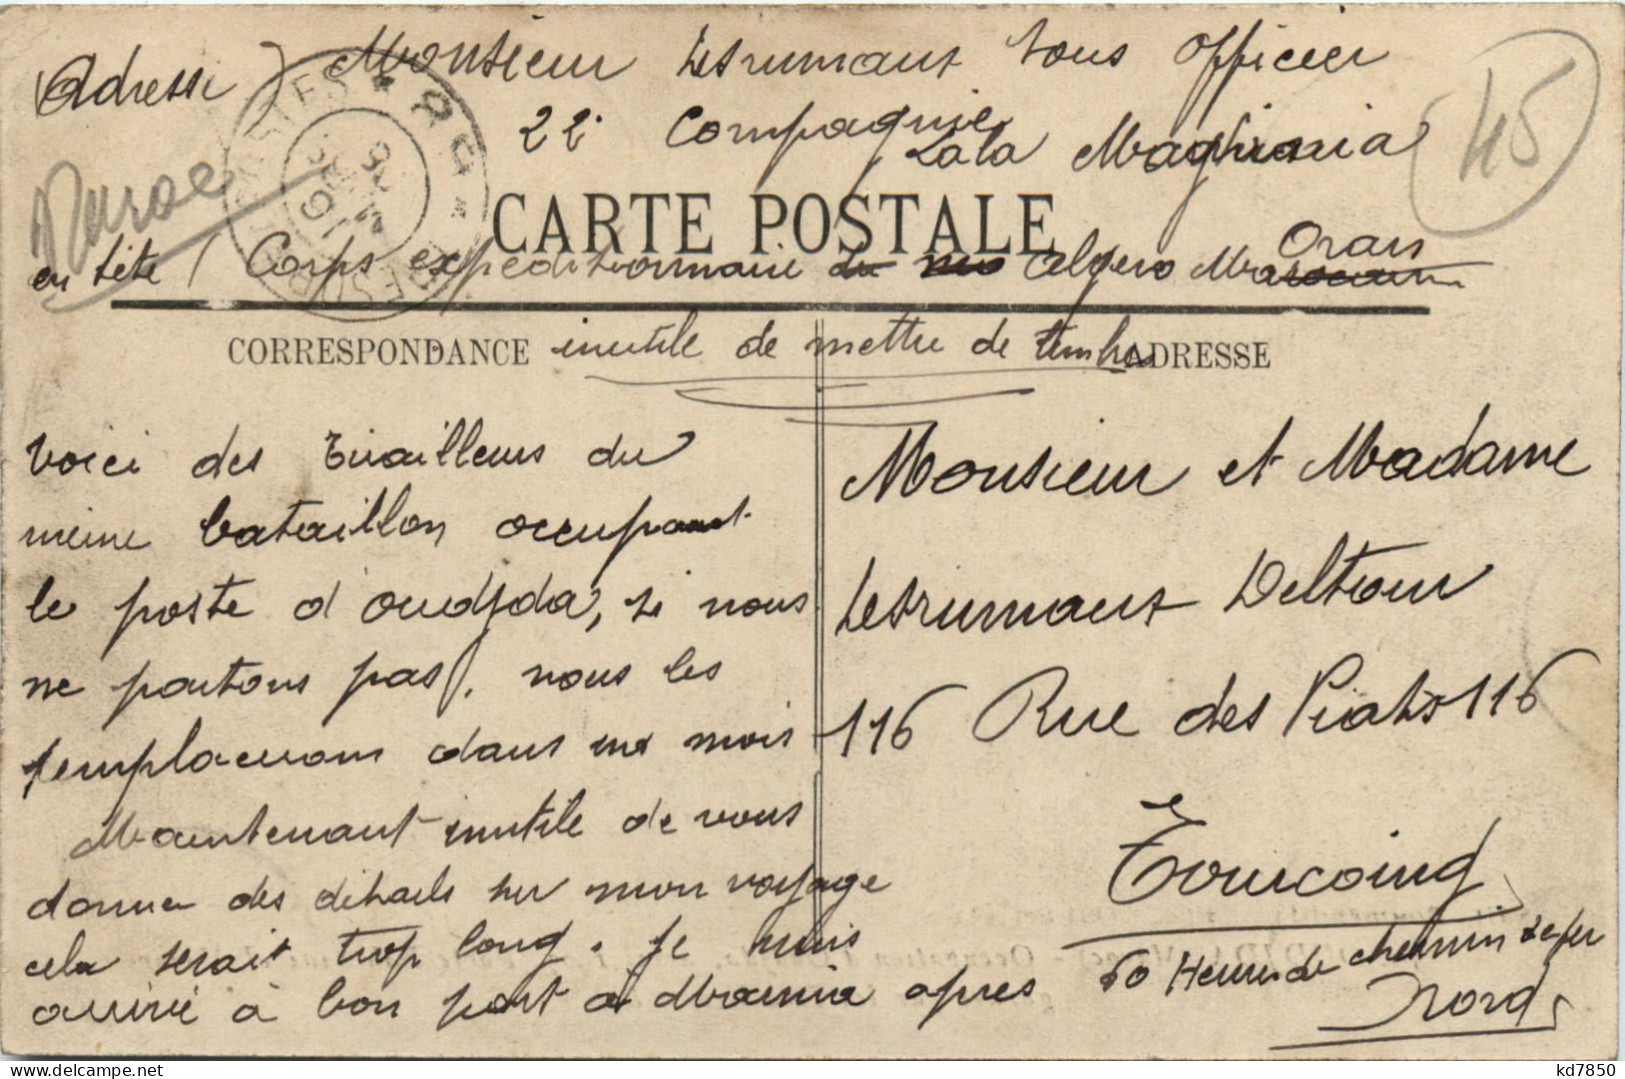 Adresse) Monsieur Lestrumaux sous officier
22e Compagnie
Lala Maghrnia
45
Maroc
CARTE POSTALE
Oran
en tête / Corps expeditionnaire du mo Algero Marocain
CORRESPONDANCE
inutile de mettre de timbres
ADRESSE
Voici des Tirailleurs du
même bataillon occupant
le poste d'Oudjda, si nous
ne partons pas, nous les
remplacerons dans un mois
Maintenant inutile de vous
donner des détails sur mon voyage
cela serait trop long. Je suis
arrivé à bon port à Marnia apres 60 Heures de chemin de fer
Monsieur et Madame
Lestrumaux Deltour
116 Rue des Piats 116
Tourcoing
Nord
kd7850